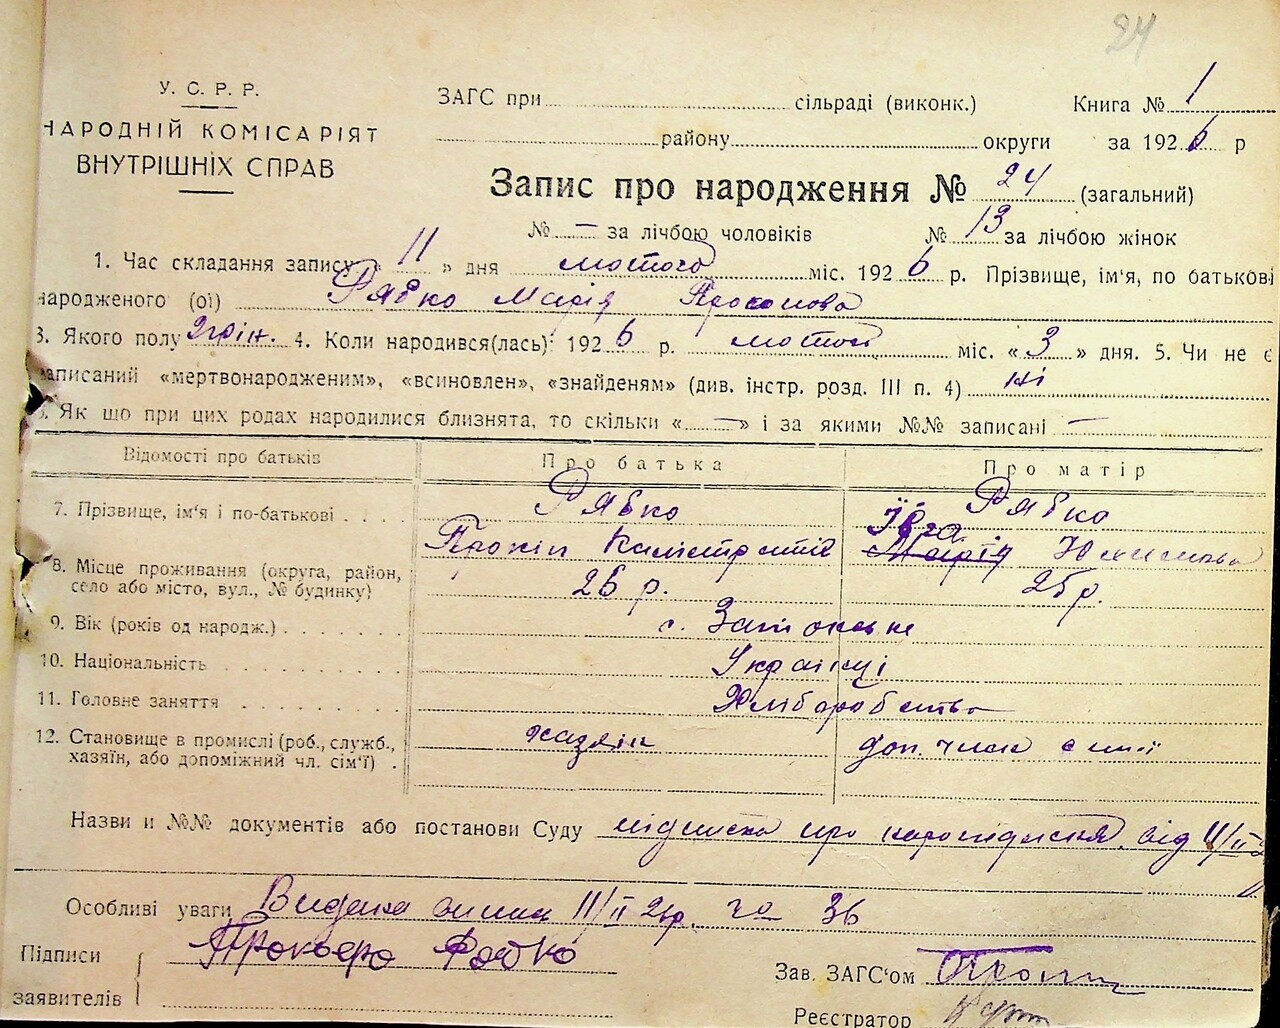 24
У. С. Р. Р.
НАРОДНІЙ КОМІСАРІЯТ
ВНУТРІШНІХ СПРАВ
ЗАГС при сільраді (виконк.) Книга № 1
району округи за 1926 р
Запис про народження № 24 (загальний)
№ — за лічбою чоловіків № 13 за лічбою жінок
1. Час складання запису « 11 » дня лютого міс. 1926 р. Прізвище, ім'я, по батькові
народженого (ої) Рябко Марія Прокопова
3. Якого полу жін. 4. Коли народився(лась): 1926 р. лютого міс. «3» дня. 5. Чи не є
записаний «мертвонародженим», «всиновлен», «знайденям» (див. інстр. розд. III п. 4) ні
Як що при цих родах народилися близнята, то скільки «—» і за якими №№ записані —
Відомості про батьків Про батька Про матір
7. Прізвище, ім'я і по-батькові Рябко Рябко
Прокіп Ївга Марія
8. Місце проживання (округа, район,
село або місто, вул., № будинку) 26 р. 25 р.
9. Вік (років од народж.) с.
10. Національність Українці
11. Головне заняття Хліборобство
12. Становище в промислі (роб., служб.,
хазяїн, або допоміжний чл. сім'ї) хазяїн доп. член сімї
Назви и №№ документів або постанови Суду підписка про народження від 11/II
Особливі уваги Видана 11/II 26р. за 36
Підписи
заявителів
Зав. ЗАГС'ом
Реєстратор